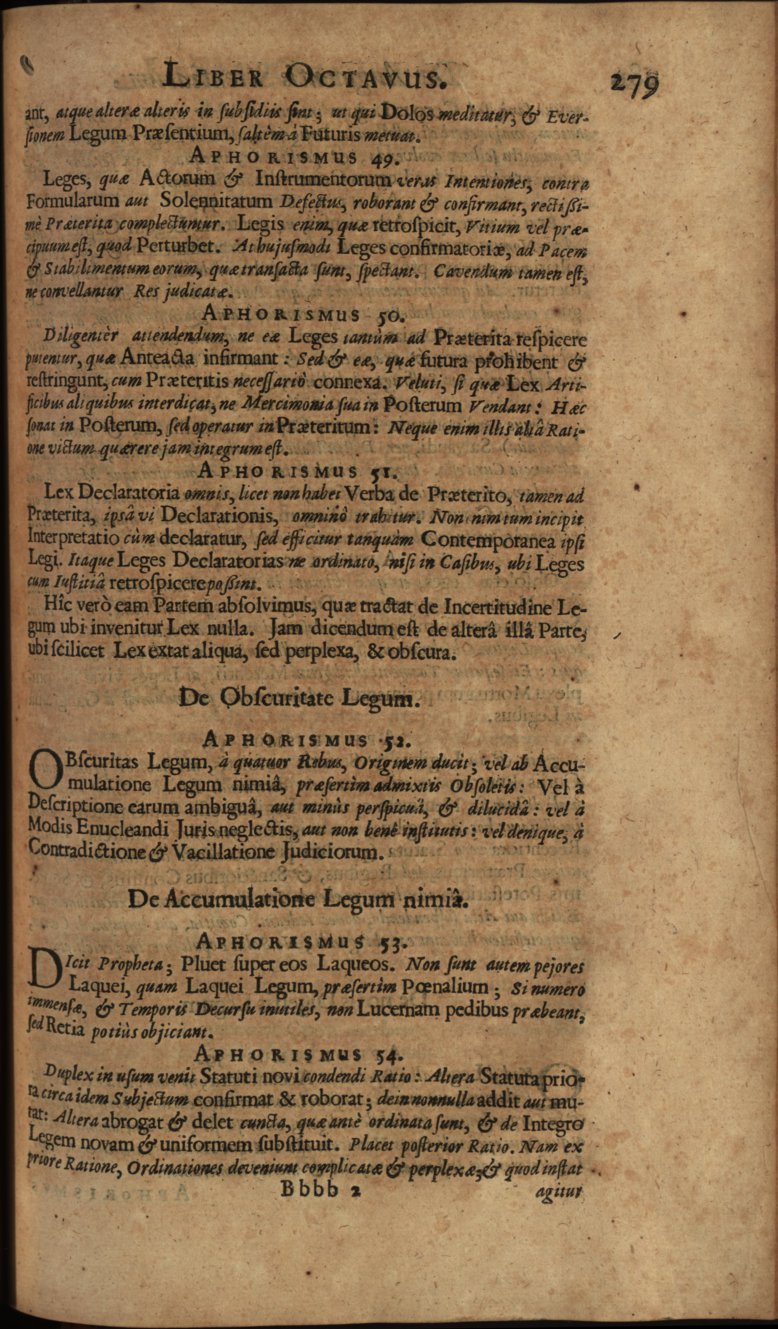 LIBER OCTAVUS. 279
ant, atque alteræ alteris in subsidiis sint; ut qui Dolos meditatur, & Ever-
sionem Legum Præsentium, saltèm à Futuris metuat.
APHORISMUS 49.
Leges, quæ Actorum & Instrumentorum veras Intentiones, contra
Formularum aut Solennitatum Defectus, roborant & confirmant, rectissi-
mè Præterita complectuntur. Legis enim, quæ retrospicit, Vitium vel præ-
cipuum est, quod Perturbet. At hujusmodi Leges confirmatoriæ, ad Pacem
& Stabilimentum eorum, quæ transacta sunt, spectant. Cavendum tamen est,
ne convellantur Res judicatæ.
APHORISMUS 50.
Diligentèr attendendum, ne eæ Leges tantùm ad Præterita respicere
putentur, quæ Anteacta infirmant: Sed & eæ, quæ futura prohibent &
restringunt, cum Præteritis necessariò connexa. Veluti, si quæ Lex Arti-
ficibus aliquibus interdicat, ne Mercimonia sua in Posterum Vendant: Hæc
sonat in Posterum, sed operatur in Præteritum: Neque enim illis aliâ Rati-
one victum quærere jam integrum est.
APHORISMUS 51.
Lex Declaratoria omnis, licet non habet Verba de Præterito, tamen ad
Præterita, ipsâ vi Declarationis, omninò trahitur. Non nim tum incipit
Interpretatio cùm declaratur, sed efficitur tanquàm Contemporanea ipsi
Legi. Itaque Leges Declaratorias ne ordinato, nisi in Casibus, ubi Leges
cum Iustitiâ retrospicere possint.
Hîc verò eam Partem absolvimus, quæ tractat de Incertitudine Le-
gum ubi invenitur Lex nulla. Jam dicendum est de alterâ illâ Parte,
ubi scilicet Lex extat aliqua, sed perplexa, & obscura.
De Obscuritate Legum.
APHORISMUS 52.
OBscuritas Legum, à quatuor Rebus, Originem ducit; vel ab Accu-
mulatione Legum nimiâ, præsertim admixtis Obsoletis: Vel à
Descriptione earum ambiguâ, aut minùs perspicuâ, & dilucidâ: vel à
Modis Enucleandi Juris neglectis, aut non benè institutis: vel denique, à
Contradictione & Vacillatione Judiciorum.
De Accumulatione Legum nimiâ.
APHORISMUS 53.
DIcit Propheta; Pluet super eos Laqueos. Non sunt autem pejores
Laquei, quam Laquei Legum, præsertim Pœnalium; Si numero
immensæ, & Temporis Decursu inutiles, non Lucernam pedibus præbeant,
sed Retia potiùs objiciant.
APHORISMUS 54.
Duplex in usum venit Statuti novi condendi Ratio: Altera Statuta prio-
ra circa idem Subjectum confirmat & roborat; dein nonnulla addit aut mu-
tat: Altera abrogat & delet cuncta, quæ antè ordinata sunt, & de Integro
Legem novam & uniformem substituit. Placet posterior Ratio. Nam ex
priore Ratione, Ordinationes deveniunt complicatæ & perplexæ, & quod instat
Bbbb 2 agitur